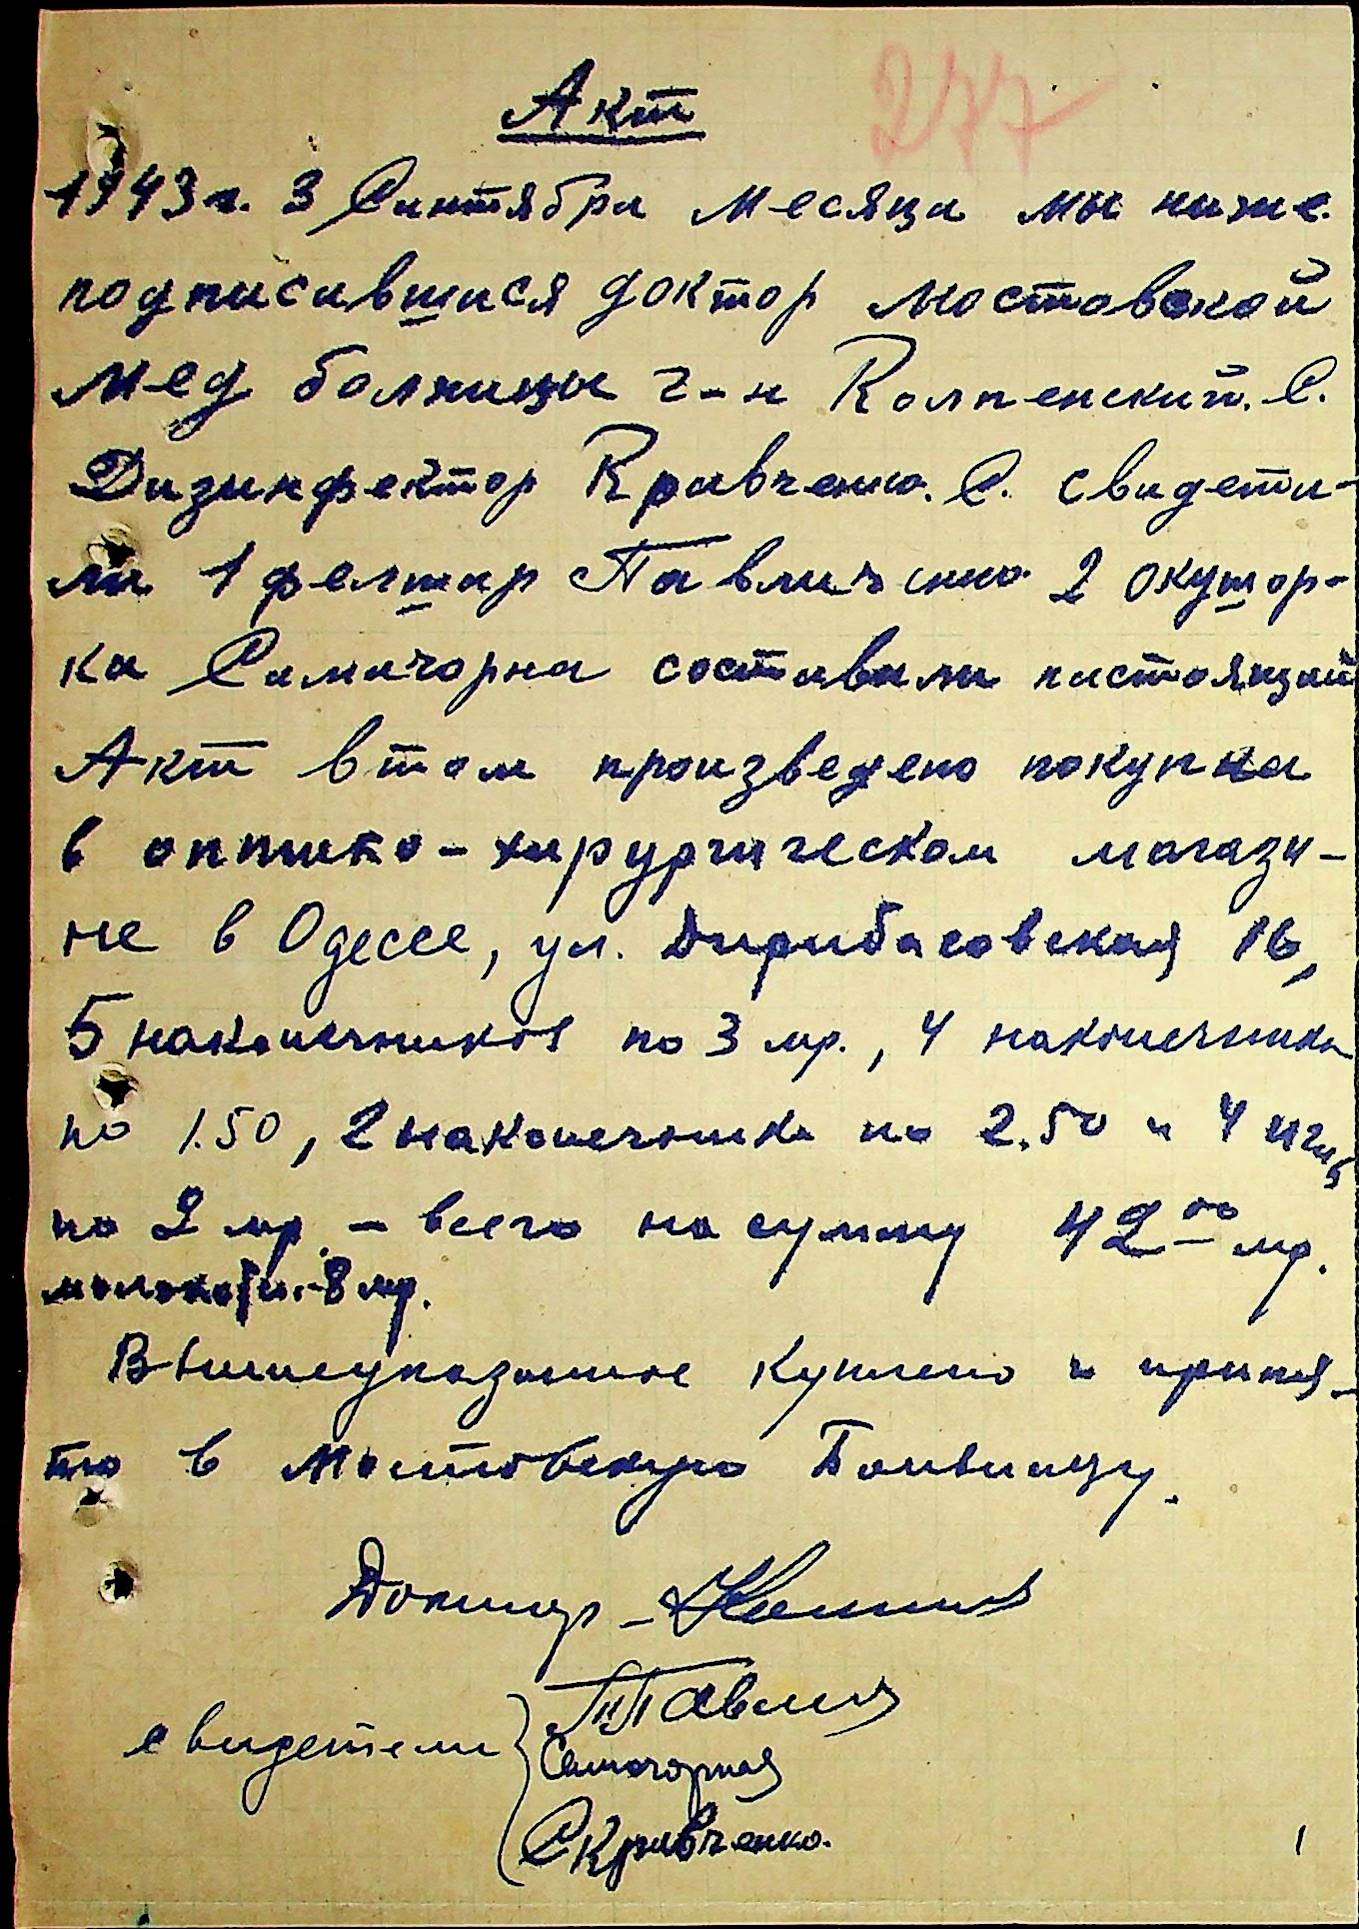 277
Акт
1943 г. 3 Синтября месяца мы ниже.
подписавшися доктор мостовской
мед болницы г-н Колпенский. С.
Дизинфектор Кравченко. С. свидети-
ли 1 фелшар Павличенко 2 окушор-
ка Самачорна составили настоящий
Акт втом произведено покупка
в оптико-хирургическом магази-
не в Одессе, ул. Дирибасовская 16,
5 наконечников по 3 мр., 4 наконечника
по 1.50, 2 наконечника по 2.50 и 4 иглы
по 2 мр. - всего на сумму 42 00 мр.
8 мр.
Вышеуказанное куплено и приня-
то в Мостовскую Больницу.
Доктор -
свидетели Павлич
Самочорная
СКравченко.
1